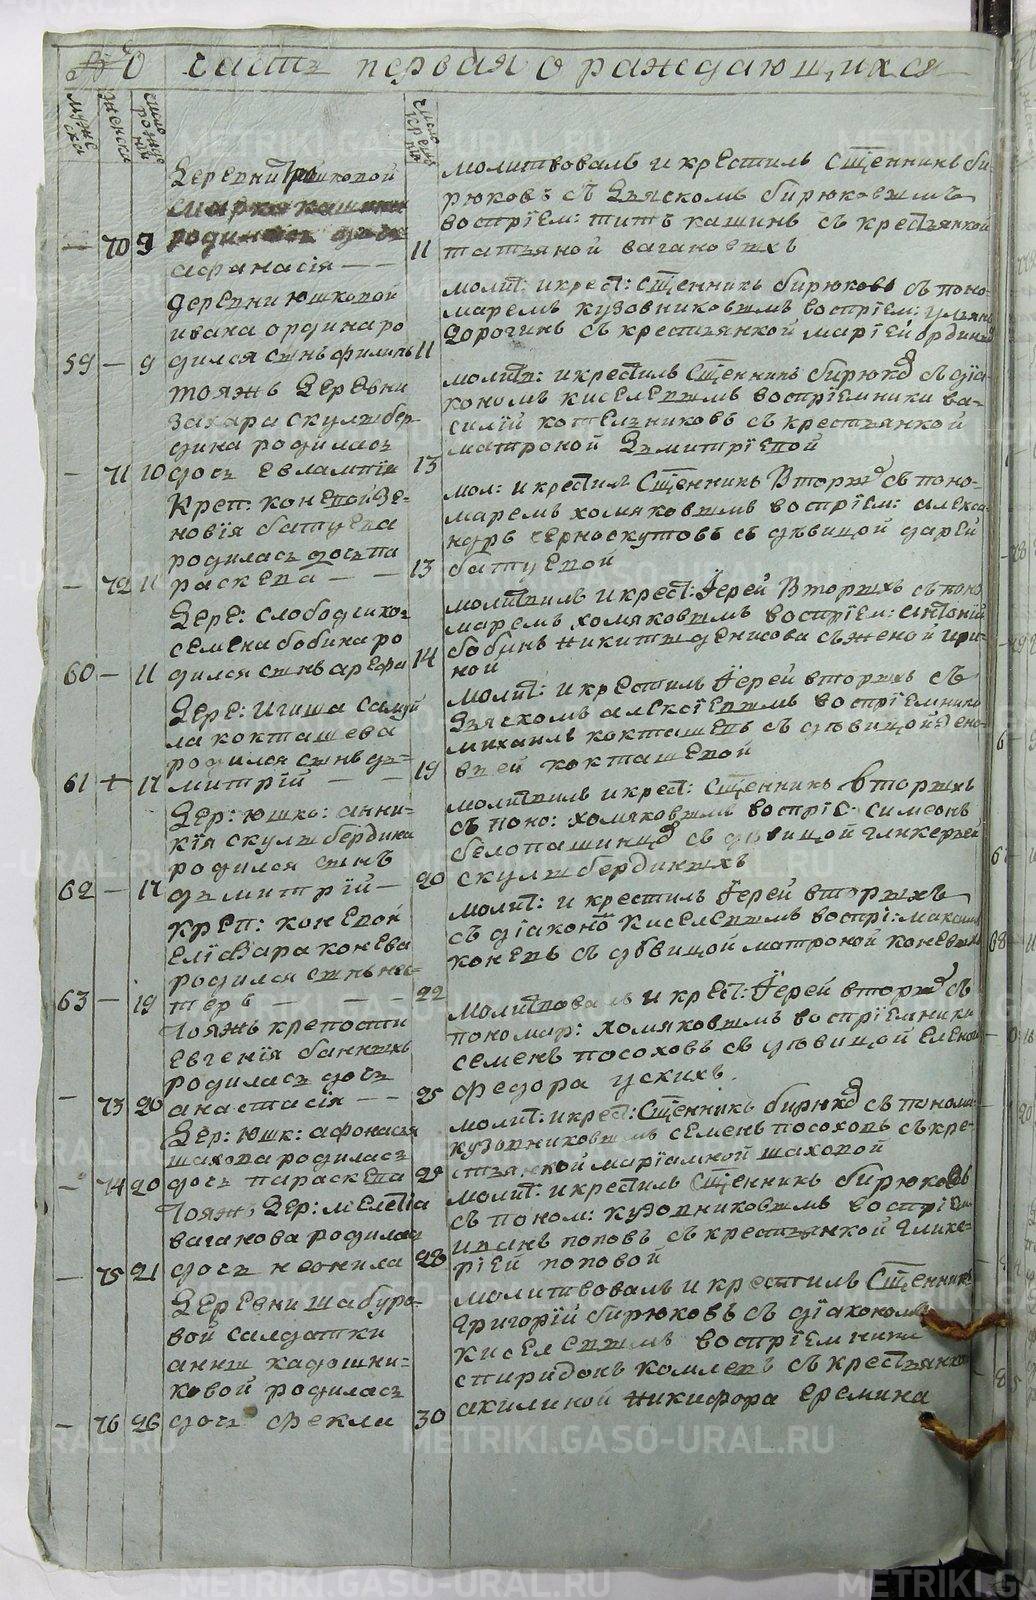 часть первая о раждающихся
мужеска
женска
число рожде
ния
число креще
ния
Деревни Юшковой
Марка Кашина
родилась дочь
— 70 9 афанасія — — 11
молитвовалъ и крестилъ Сщенникъ би-
рюковъ съ Дьяскомъ бирюковымъ
воспріем: титъ кашинъ съ крестьянкой
татьяной вагановыхъ
деревни юшковой
ивана ордина ро
59 — 9 дился сынъ филипъ 11
молит: и крест: Сщенникъ бирюковъ съ поно-
маремъ кудовниковымъ воспріем: ульянъ
Дорогинъ съ крестьянкой маріей ординой
тояжъ Деревни
Захара скулыбер-
дина родилась
— 71 10 дочь евлампія 13
молитв: и крестилъ Сщенникъ бирюковъ съ діа-
кономъ киселевымъ воспріемники ва-
силій котельниковъ съ крестьянкой
матроной Дьмитріевой
креп: коневой зе-
новія батуева
родилась дочь па
— 72 11 раскева — — 13
мол: и крестилъ Сщенникъ Вторыхъ съ поно-
маремъ хомяковымъ воспріем: алекса-
ндръ черноскутовъ съ дѣвицой дарей
батуевой
Дере: слободчико:
семена бобина ро
60 — 11 дился сынъ арефа 14
молитвилъ и крест: Іерей Вторыхъ съ поно
маремъ хомяковымъ воспріем: антоній
бобинъ Никиты денисова съ женой ири-
ной
Дере: Игиша самуй
ла кокташева
родился сынъ дь-
61 + 17 митрій — — 19
молит: и крестилъ Іерей вторыхъ съ
Дьяскомъ алексіевымъ воспріемники
михаилъ кокташевъ съ дѣвицой Зено-
віей кокташевой
Дер: юшко: анни-
кія скулыбердина
родился сынъ
62 — 17 дьмитрій — 20
молитвилъ и крест: Сщенникъ вторыхъ
съ поно: хомяковымъ воспріе: симеонъ
белопашинцовъ съ дѣвицой гликерьей
скулыбердиныхъ
креп: коневой
елізвара конева
родился сынъ нес-
63 — 19 теръ — — — 22
молит: и крестилъ Іерей вторыхъ
съ діакономъ Киселевымъ воспрі: максимъ
коневъ съ дѣвицой матроной коневыхъ
тояжъ крепости
Евгенія банныхъ
родилась дочь
— 73 20 анастасія — — 25
молитвовалъ и крест: Іерей вторыхъ съ
пономар: хомяковымъ воспріемники
семенъ посоховъ съ дѣвицой еленой
федора ускихъ.
Дер: Юшк: афонасья
шахова родилась
— 74 20 дочь параскева 25
молит: и крест: Сщенникъ бирюковъ съ понома:
кудовниковымъ семенъ посоховъ съ кре-
стьянкой маріамной шаховой
тояжъ Дер: мелетіа
ваганова родилась
— 75 21 дочь неонила 28
молит: и крестилъ Сщенникъ бирюковъ
съ поном: кудовниковымъ воспріем:
иванъ поповъ съ крестьянкой глике-
ріей поповой
Деревни шабуро-
вой салдатки
анны кадошни-
ковой родилась
— 76 26 дочь фекла 30
молитвовалъ и крестилъ Сщенникъ
григорій бирюковъ съ діакономъ
киселевымъ воспріемники
спиридонъ комлевъ съ крестьянкой
акилиной никифора еремина
METRIKI.GASO-URAL.RU